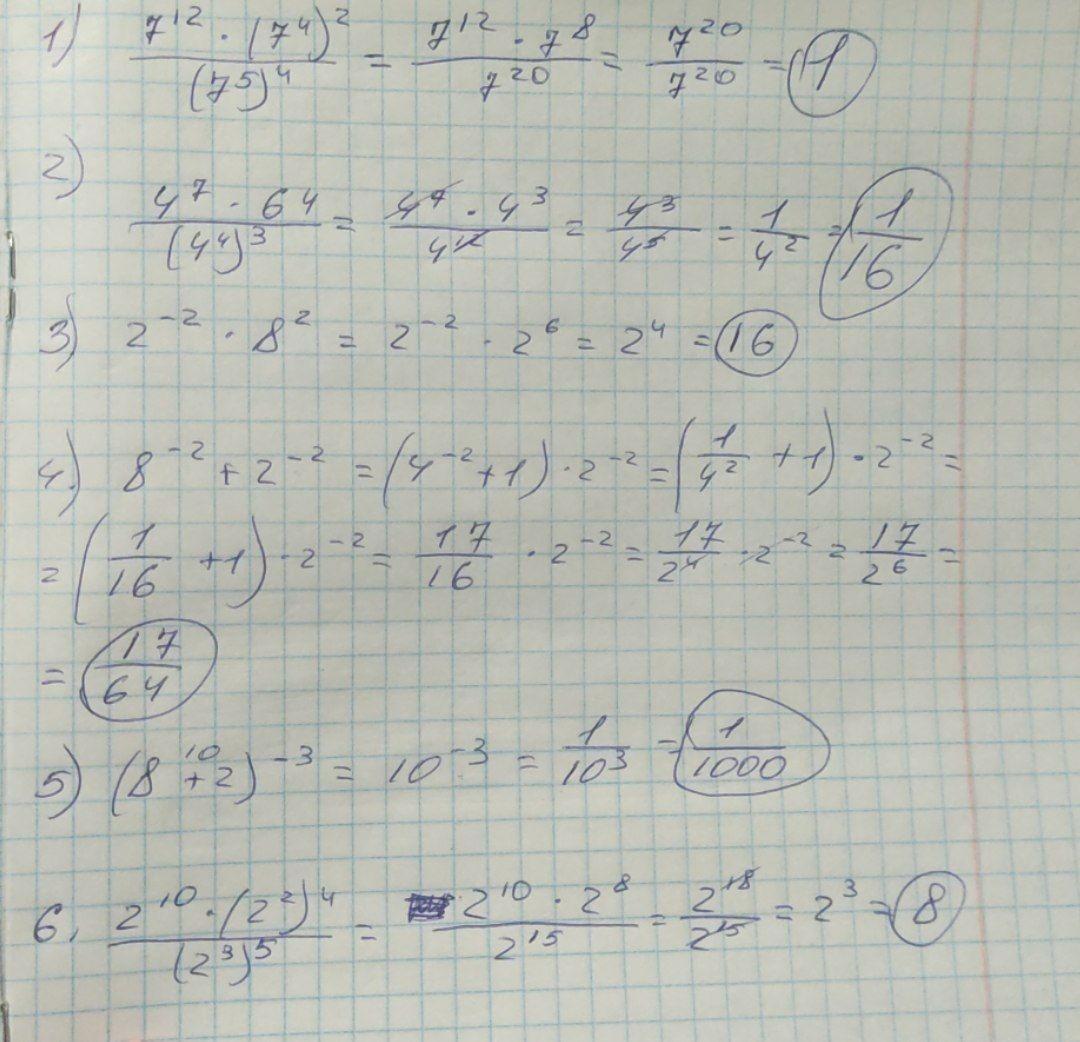 1) (7^12 · (7^4)^2)/((7^5)^4) = (7^12 · 7^8)/(7^20) = 7^20/7^20 = 1
2) (4^7 · 64)/((4^4)^3) = (4^7 · 4^3)/(4^12) = 4^3/4^5 = 1/4^2 = 1/16
3) 2^-2 · 8^2 = 2^-2 · 2^6 = 2^4 = 16
4) 8^-2 + 2^-2 = (4^-2 + 1) · 2^-2 = (1/4^2 + 1) · 2^-2 =
= (1/16 + 1) · 2^-2 = 17/16 · 2^-2 = 17/2^4 · 2^-2 = 17/2^6 =
= 17/64
5) (8 + 2)^-3 = 10^-3 = 1/10^3 = 1/1000
10
6. (2^10 · (2^2)^4)/((2^3)^5) = (2^10 · 2^8)/(2^15) = 2^18/2^15 = 2^3 = 8